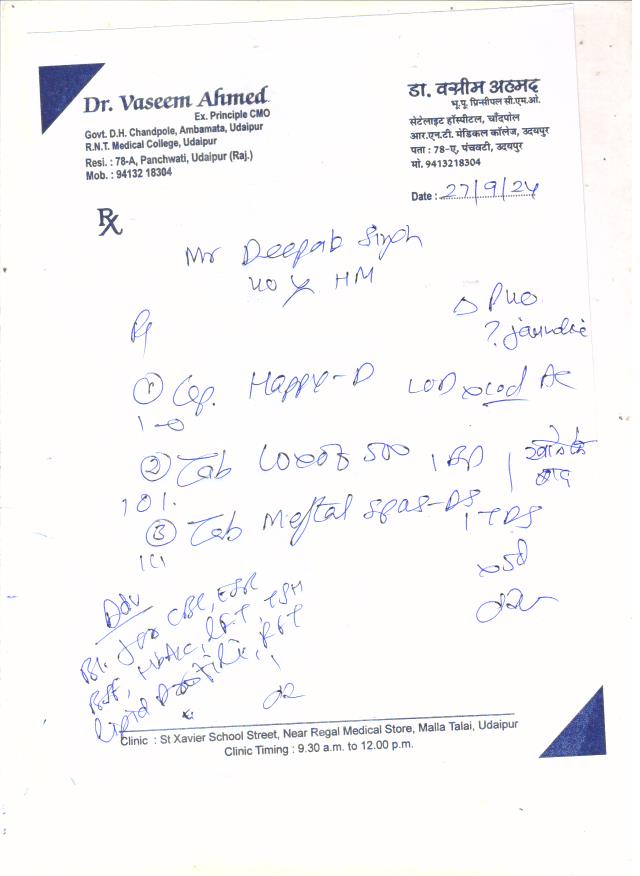 Dr. Vaseem Ahmed
Ex. Principle CMO
Govt. D.H. Chandpole, Ambamata, Udaipur
R.N.T. Medical College, Udaipur
Resi. : 78-A, Panchwati, Udaipur (Raj.)
Mob. : 94132 18304
डा. वसीम अहमद
भू.पू. प्रिनसीपल सी.एम.ओ.
सेटेलाइट हॉस्पीटल, चाँदपोल
आर.एन.टी. मेडिकल कॉलेज, उदयपुर
पता : 78-ए, पंचवटी, उदयपुर
मो. 9413218304
Date : 27/9/24
Rx
Mr Deepak Singh
40 Y HM
△ PUO
? jaundice
Rx
① Cap. Happy-D 1 OD x 10d AC
1-0
② Tab 500 1 BD
खाने के
बाद
101.
③ Tab Meftal Spas-DS 1 TDS
x 5d
Adv
Bl. for CBC, ESR
BSF, HbA1c, LFT, TSH
Lipid Profile, RFT
Clinic : St Xavier School Street, Near Regal Medical Store, Malla Talai, Udaipur
Clinic Timing : 9.30 a.m. to 12.00 p.m.